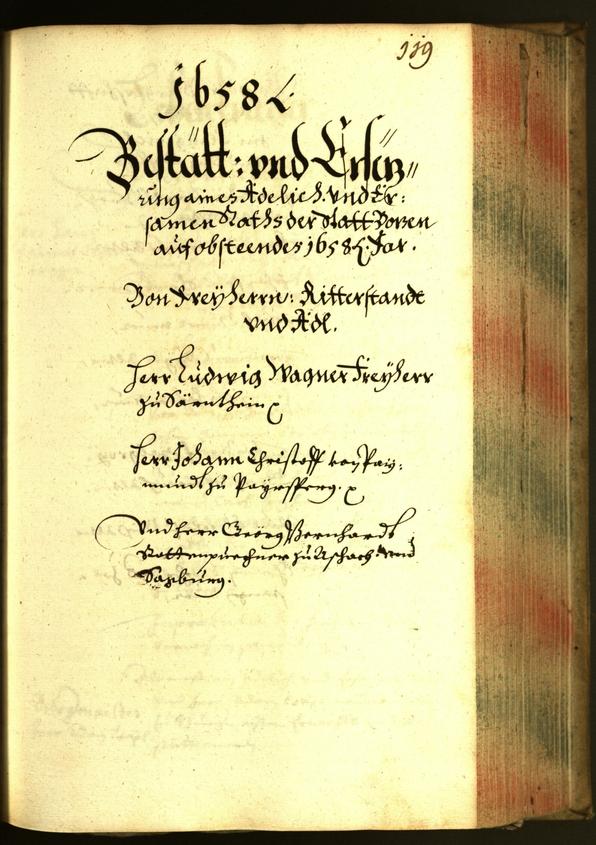 119
1658
Bestätt: vnd Ersez„
zung aines Adelich. vnd Er:
samen Raths der Statt Bozen
auf obsteendes 1658. Jar.
Von Freyherrn: Ritterstandt
vnd Adl.
Herr Ludwig Wagner Freyherr
zu Särnthein
Herr Johann Christoff von Pay:
mundt zu Payrsperg.
Vnd Herr Georg Bernhardt
Rottenpuechner zu Aschach vnd